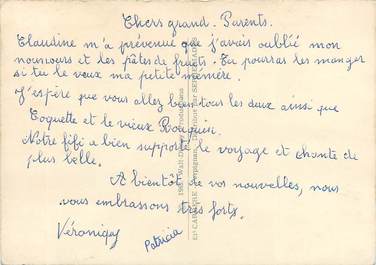 Chers grand-Parents.
Claudine m'a prévenue que j'avais oublié mon
nounours et les pâtes de fruits. Tu pourras les manger
si tu le veux ma petite mémère.
J'espère que vous allez bien tous les deux ainsi que
Coquette et le vieux Bouquin.
Notre fifi a bien supporté le voyage et chante de
plus belle.
A bientôt de vos nouvelles, nous
vous embrassons très forts.
Véronique
Patricia